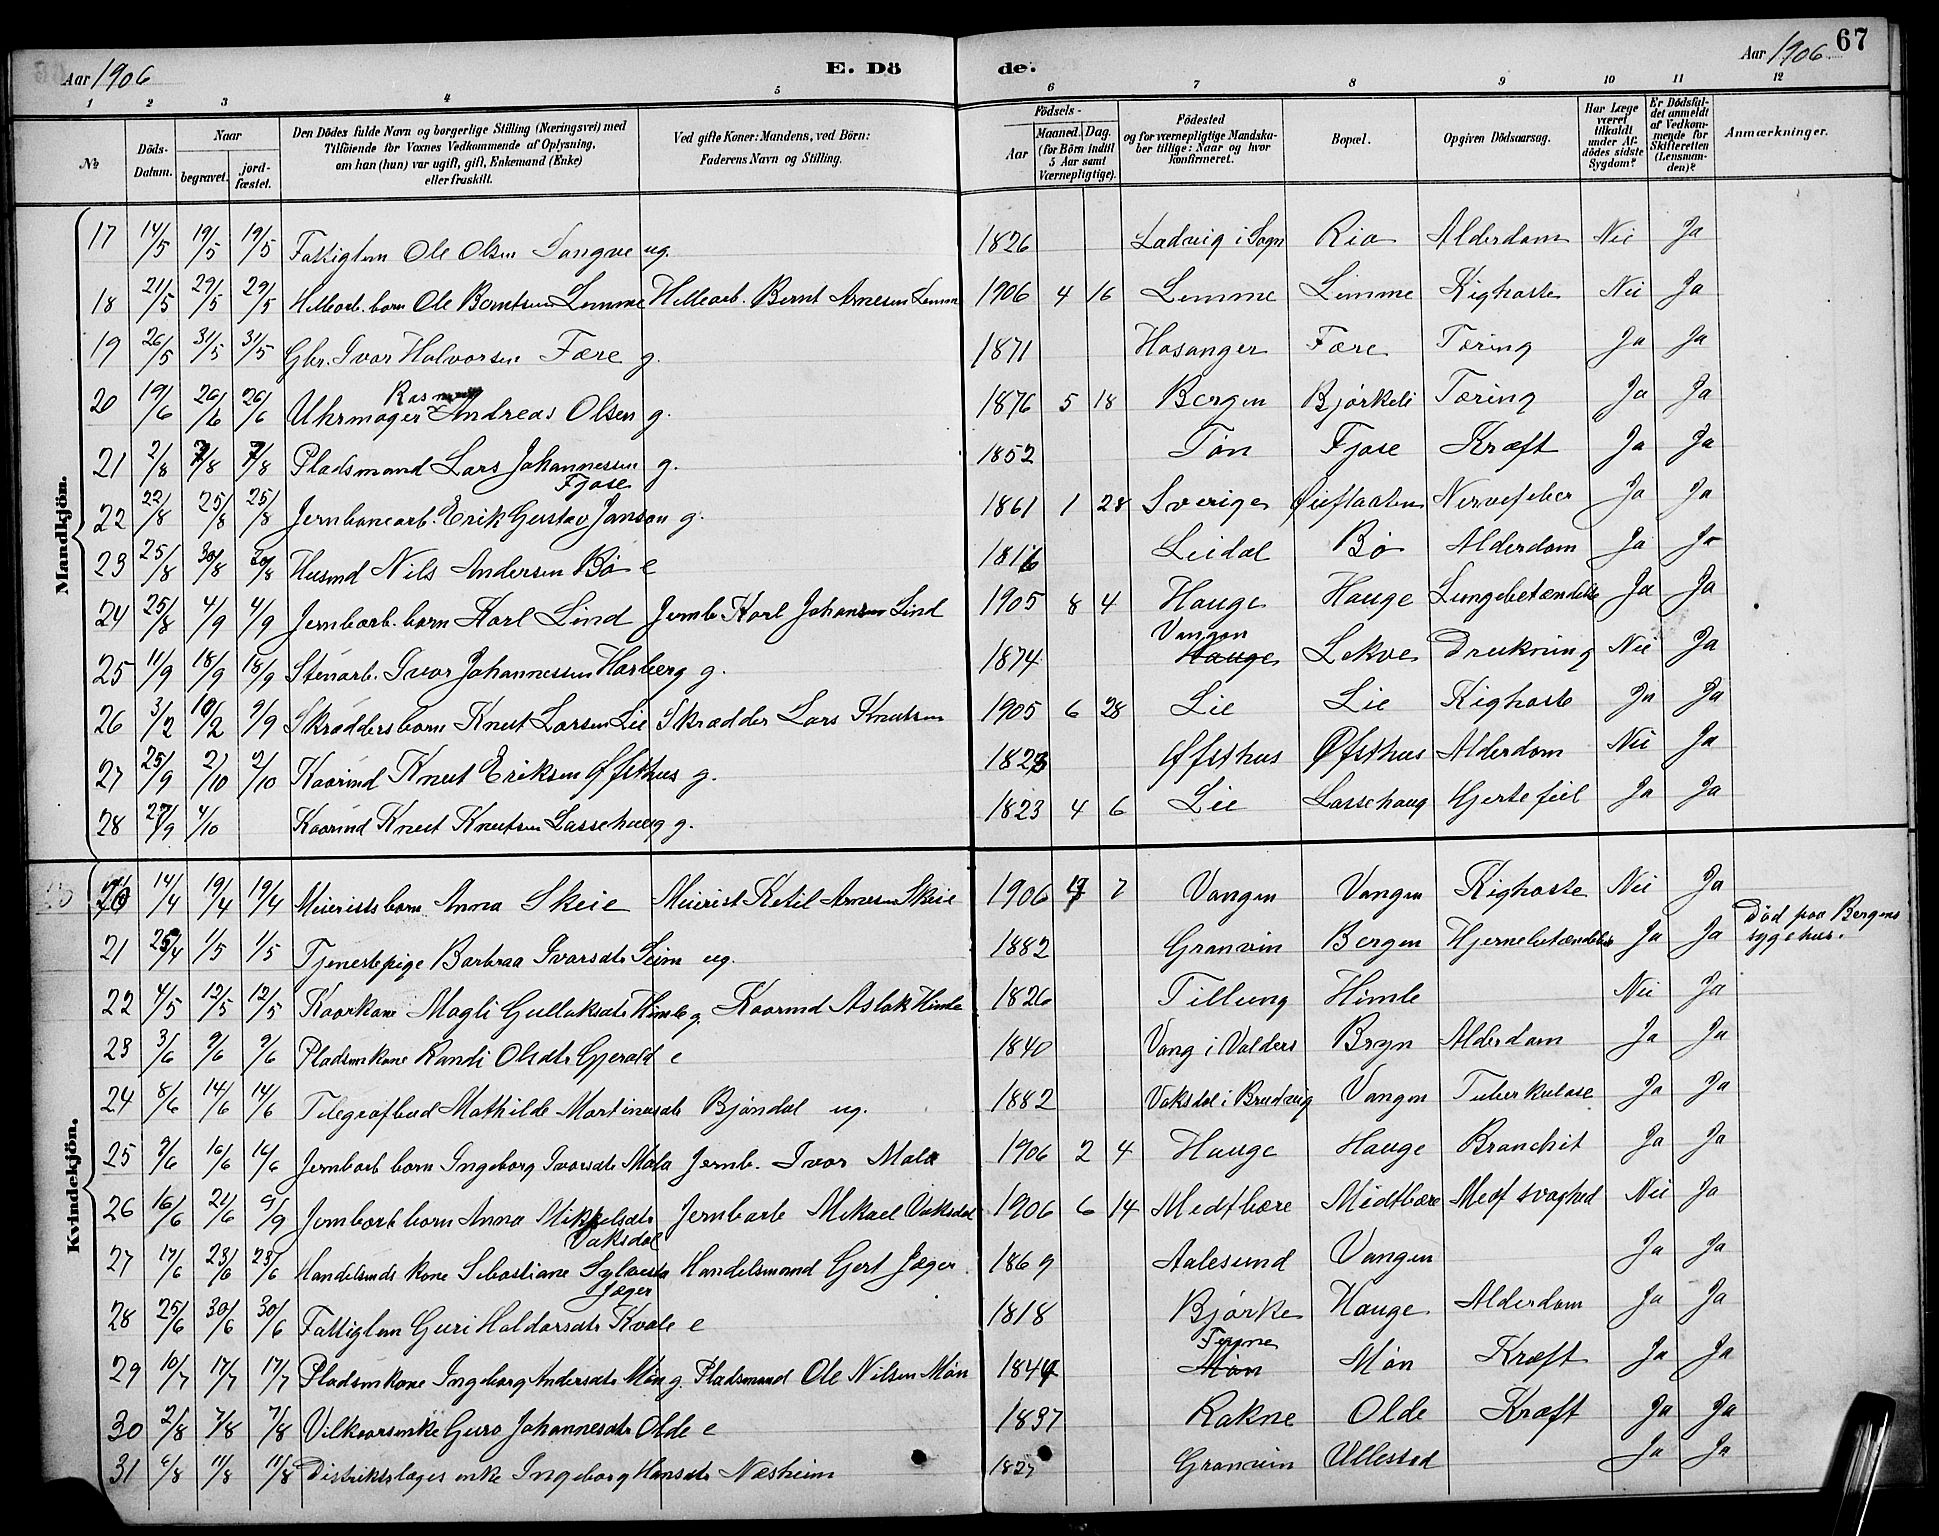 Aar 1906
E. Dö
de.
Aar 1906.
67
1 2 3 4 5 6 7 8 9 10 11 12
No
Döds-Datum.
Naar
begravet.
jord-fæstet.
Den Dödes fulde Navn og borgerlige Stilling (Næringsvei) med
Tilföiende for Voxnes Vedkommende af Oplysning,
om han (hun) var ugift, gift, Enkemand (Enke)
eller fraskilt.
Ved gifte Koner: Mandens, ved Börn:
Faderens Navn og Stilling.
Födsels-
Aar
Maaned. Dag.
(for Börn indtil
5 Aar samt
Værnepligtige).
Födested
og for værnepligtige Mandska-
ber tillige: Naar og hvor
konfirmeret.
Bopæl.
Opgiven Dödsaarsag.
Har Læge
været
tilkaldt
under Af-
dödes sidste
Sygdom?
Er Dödsfal-
det anmeldt
af Vedkom-
mende for
Skifteretten
(Lensman-
den)?
Anmærkninger.
Mandkjön.
17 14/5 19/5 19/5 Fattiglem Ole Olsen Sangve ug. 1826 Ladvig i Sogn Rio Alderdom Nei Ja
18 21/5 29/5 29/5 Hellearb. barn Ole Berntsen Lemme Hellearb. Bernt Arnesen Lemme 1906 4 16 Lemme Lemme Kighoste Nei Ja
19 26/5 31/5 31/5 Gbr. Ivar Halvorsen Fære g. 1871 Hosanger Fære Tæring Ja Ja
20 19/6 26/6 26/6 Uhrmager Rasmus Andreas Olsen g. 1876 5 18 Bergen Bjørkeli Tæring Ja Ja
21 2/8 7/8 7/8 Pladsmand Lars Johannessen Fjose g. 1852 Tøn Fjose Kræft Ja Ja
22 22/8 25/8 25/8 Jernbanearb. Erik Gustav Janson g. 1861 1 28 Sverige Øieflaaten Nervefeber Ja Ja
23 25/8 30/8 30/8 Husmd Nils Andersen Bø e 1816 Leidal Bø Alderdom Ja Ja
24 25/8 4/9 4/9 Jernbarb. barn Karl Lind Jernb. Karl Johansen Lind 1905 8 4 Hauge Hauge Lungebetændelse Ja Ja
25 11/9 18/9 18/9 Stenarb. Ivar Johannessen Horberg g. 1874 Vangen Hauge Lekve Drukning Nei Ja
26 3/2 10/2 9/9 Skrædders barn Knut Larsen Lie Skrædder Lars Knutsen 1905 6 28 Lie Lie Kighoste Ja Ja
27 25/9 2/10 2/10 Kaarmd Knut Eriksen Øfsthus g. 1823 Øfsthus Øfsthus Alderdom Nei Ja
28 27/9 4/10 Kaarmd Knut Knutsen Lassehaug g. 1823 4 6 Lie Lassehaug Hjertefeil Ja Ja
Kvindekjön.
20 14/4 19/4 19/4 Meierists barn Anna Skeie Meierist Ketil Arnesen Skeie 1906 7 Vangen Vangen Kighoste Nei Ja
21 25/4 1/5 1/5 Tjenestepige Barbraa Ivarsdtr Seim ug. 1882 Granvin Bergen Hjernebetændelse Ja Ja Død paa Bergens sygehus.
22 4/5 12/5 12/5 Kaarkone Magli Gullaksdtr Himle g. Kaarmd Aslak Himle 1826 Tillung Himle Nei Ja
23 3/6 9/6 9/6 Pladsmkone Randi Olsdtr Gjerald e 1840 Vang i Valders Bryn Alderdom Ja Ja
24 8/6 14/6 14/6 Telegrafbud Mathilde Martinusdtr Bjøndal ug. 1882 Vaksdal i Bruvig Vangen Tuberkulose Ja Ja
25 9/6 16/6 16/6 Jernbarb barn Ingeborg Ivarsdtr Mala Jernb. Ivar Mala 1906 2 4 Hauge Hauge Bronchit Ja Ja
26 16/6 21/6 9/9 Jernbarb barn Anna Mikkelsdtr Vaksdal Jernbarb Mikael Vaksdal 1906 6 14 Medtbære Midtbære Medf svaghed Nei Ja
27 17/6 23/6 23/6 Handelsmds kone Sebastiane Sylvesta Jæger Handelsmand Gert Jæger 1869 Aalesund Vangen Ja Ja
28 25/6 30/6 30/6 Fattiglem Guri Haldorsdtr Kvale e 1818 Bjørke Hauge Alderdom Ja Ja
29 10/7 17/7 17/7 Pladsmkone Ingeborg Andersdtr Møn g. Pladsmand Ole Nilsen Møn 1844 Tegne Møn Møn Kræft Ja Ja
30 2/8 7/8 7/8 Vilkaarsenke Guro Johannesdtr Olde e 1837 Rokne Olde Kræft Ja Ja
31 6/8 11/8 11/8 Distriktslæges enke Ingeborg Hansdtr Næsheim 1827 Granvin Ullestad Ja Ja